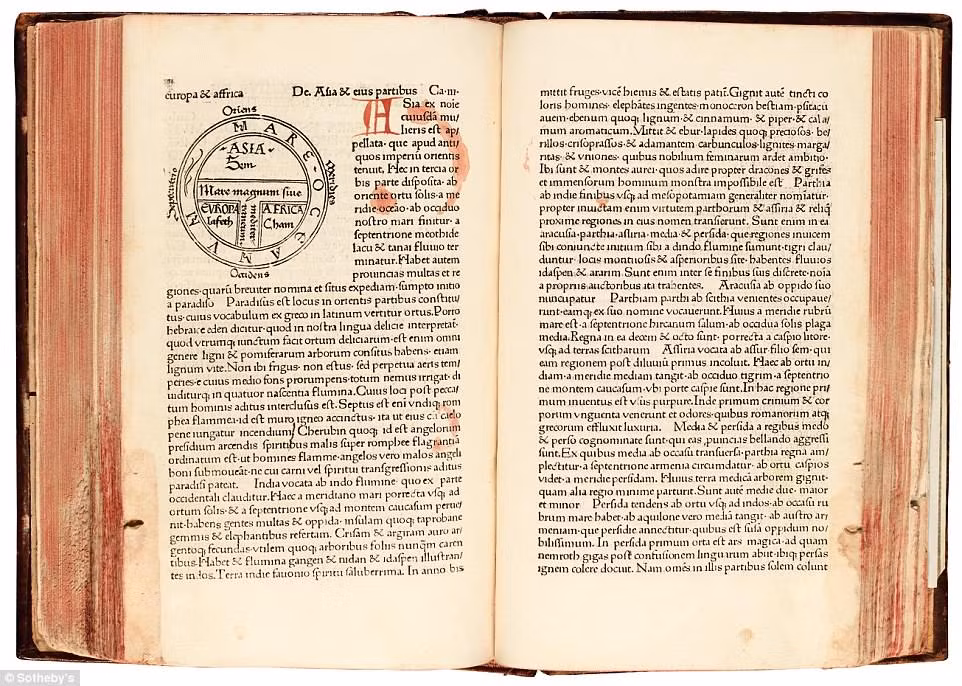 europa & affrica
De. Asia & eius partibus Ca·iii·
Oriens
MARE·OCEANUM
·ASIA·
Sem
Mare magnum siue
EVROPA
Iafeth
mediter
AFRICA
Cham
Septentrio
Meridies
Occidens
ASia ex noīe
cuiusdā mu
lieris est ap/
pellata· que apud anti/
quos imperiū orientis
tenuit. Hec in tercia or
bis parte disposita· ab
oriente ortu solis· a me
ridie·oceāo· ab occiduo
nostro mari finitur· a
septentrione meothide
lacu & tanai fluuio ter
minatur. Habet autem
prouincias multas et re
giones·quarū breuiter nomina et situs expediam·sumpto initio
a paradiso Paradisus est locus in orientis partibus constitu/
tus·cuius vocabulum ex greco in latinum vertitur ortus. Porro
hebraice eden dicitur·quod in nostra lingua delicie interpretat̄·
quod vtrumq; iunctum facit ortum deliciarum·est enim omni
genere ligni & pomiferarum arborum consitus habens· etiam
lignum vite. Non ibi frigus· non estus· sed perpetua aeris tem/
peries·e cuius medio fons prorumpens·totum nemus irrigat· di
uiditurq; in quatuor nascentia flumina. Cuius loci post pecca/
tum hominis aditus interclusus est. Septus est eni vndiq; rom
phea flammea·id est muro igneo accinctus· ita ut eius cū celo
pene iungatur incendium. Cherubin quoq; id est angelorum
presidium arcendis spiritibus malis super romphee flagrantiā
ordinatum est·ut homines flamme·angelos vero malos angeli
boni submoueāt·ne cui carni vel spiritui transgressionis aditus
paradisi pateat. India vocata ab indo flumine· quo ex parte
occidentali clauditur. Haec a meridiano mari porrecta vsq; ad
ortum solis· & a septentrione vsq; ad montem caucasum perue/
nit·habens gentes multas & oppida· insulam quoq; taprobane
gemmis & elephantibus refertam. Crisam & argiram auro ar/
gentoq; fecundas·vtilem quoq; arboribus foliis nunq̄m caren
tibus. Habet & flumina gangen & nidan & idaspen illustran/
tes indos. Terra indie fauonio spiritu saluberrima. In anno bis
mittit fruges·vice hiemis & estatis patit̄. Gignit autē tincti co
loris homines· elephātes ingentes·monoceron bestiam·psitacū
auem·ebenum quoq; lignum· & cinnamum· & piper·& cala/
mum aromaticum. Mittit & ebur·lapides quoq; preciosos· be/
rillos·crisoprassos·& adamantem·carbunculos·lignites·marga/
ritas· & vniones· quibus nobilium feminarum ardet ambitio·
Ibi sunt & montes aurei· quos adire propter dracones & grifes
et immensorum hominum monstra impossibile est Parthia
ab indie finibus vsq; ad mesopotamiam generaliter nomīatur·
propter inuictam enim virtutem parthorum & assiria & reliq̄
proxime regiones in eius nomen transierunt. Sunt enim in ea
aracusia·parthia·assiria·media· & persida·que regiones inuicem
sibi coniuncte initium sibi a indo flumine sumunt·tigri clau/
duntur· locis montiosis & asperioribus site· habentes fluuios
idaspen & ararim. Sunt enim inter se finibus suis discrete·noīa
a propriis auctoribus ita trahentes. Aracusia ab oppido suo
nuncupatur Parthiam parthi ab scithia venientes occupaue/
runt·eamq; ex suo nomine vocauerunt. Huius a meridie rubrū
mare est·a septentrione hircanum salum·ab occidua solis plaga
media. Regna in ea decem & octo sunt· porrecta a caspio litore·
vsq; ad terras scitharum Assiria vocata ab assur·filio sem· qui
eam regionem post diluuiū primus incoluit. Haec ab ortu in/
diam·a meridie mediam tangit·ab occiduo tigrim·a septentrio
ne montem caucasum·vbi porte caspie sunt. In hac regione pri/
mum inuentus est vsus purpure. Inde primum crinium & cor
porum vnguenta venerunt et odores·quibus romanorum atq;
grecorum effluxit luxuria. Media & persida a regibus medo
& perso cognominate sunt·qui eas puincias bellando aggressi
sunt. Ex quibus media ab occasu transuersa·parthia regna am/
plectitur·a septentrione armenia circumdatur· ab ortu caspios
videt·a meridie persidam. Huius terra medicā arborem gignit·
quam alia regio minime parturit. Sunt autē medie due· maior
et minor Persida tendens ab ortu vsq; ad indos·ab occasu ru
brum mare habet·ab aquilone vero mediā tangit· ab austro ar/
meniam·que persidie annectitur·quibus est susā oppidum no/
bilissimum. In persida primum orta est ars magica·ad quam
nemroth gigas post confusionem linguarum abiit·ibiq; persas
ignem colere docuit. Nam omēs in illis partibus solem colunt
© Sotheby's